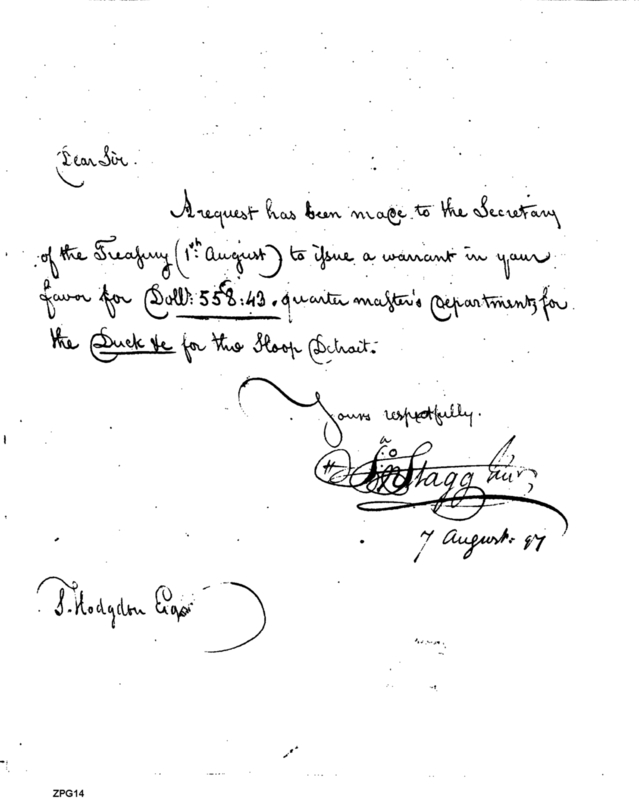 Dear Sir.
A request has been made to the Secretary
of the Treasury (1st August) to issue a warrant in your
favor for Doll.s: 558:43. quarter master's Department, for
the Duck &c for the Sloop Detroit.
Yours respectfully.
Stagg Junr
7 August. 97
S. Hodgdon Esqr.
ZPG14